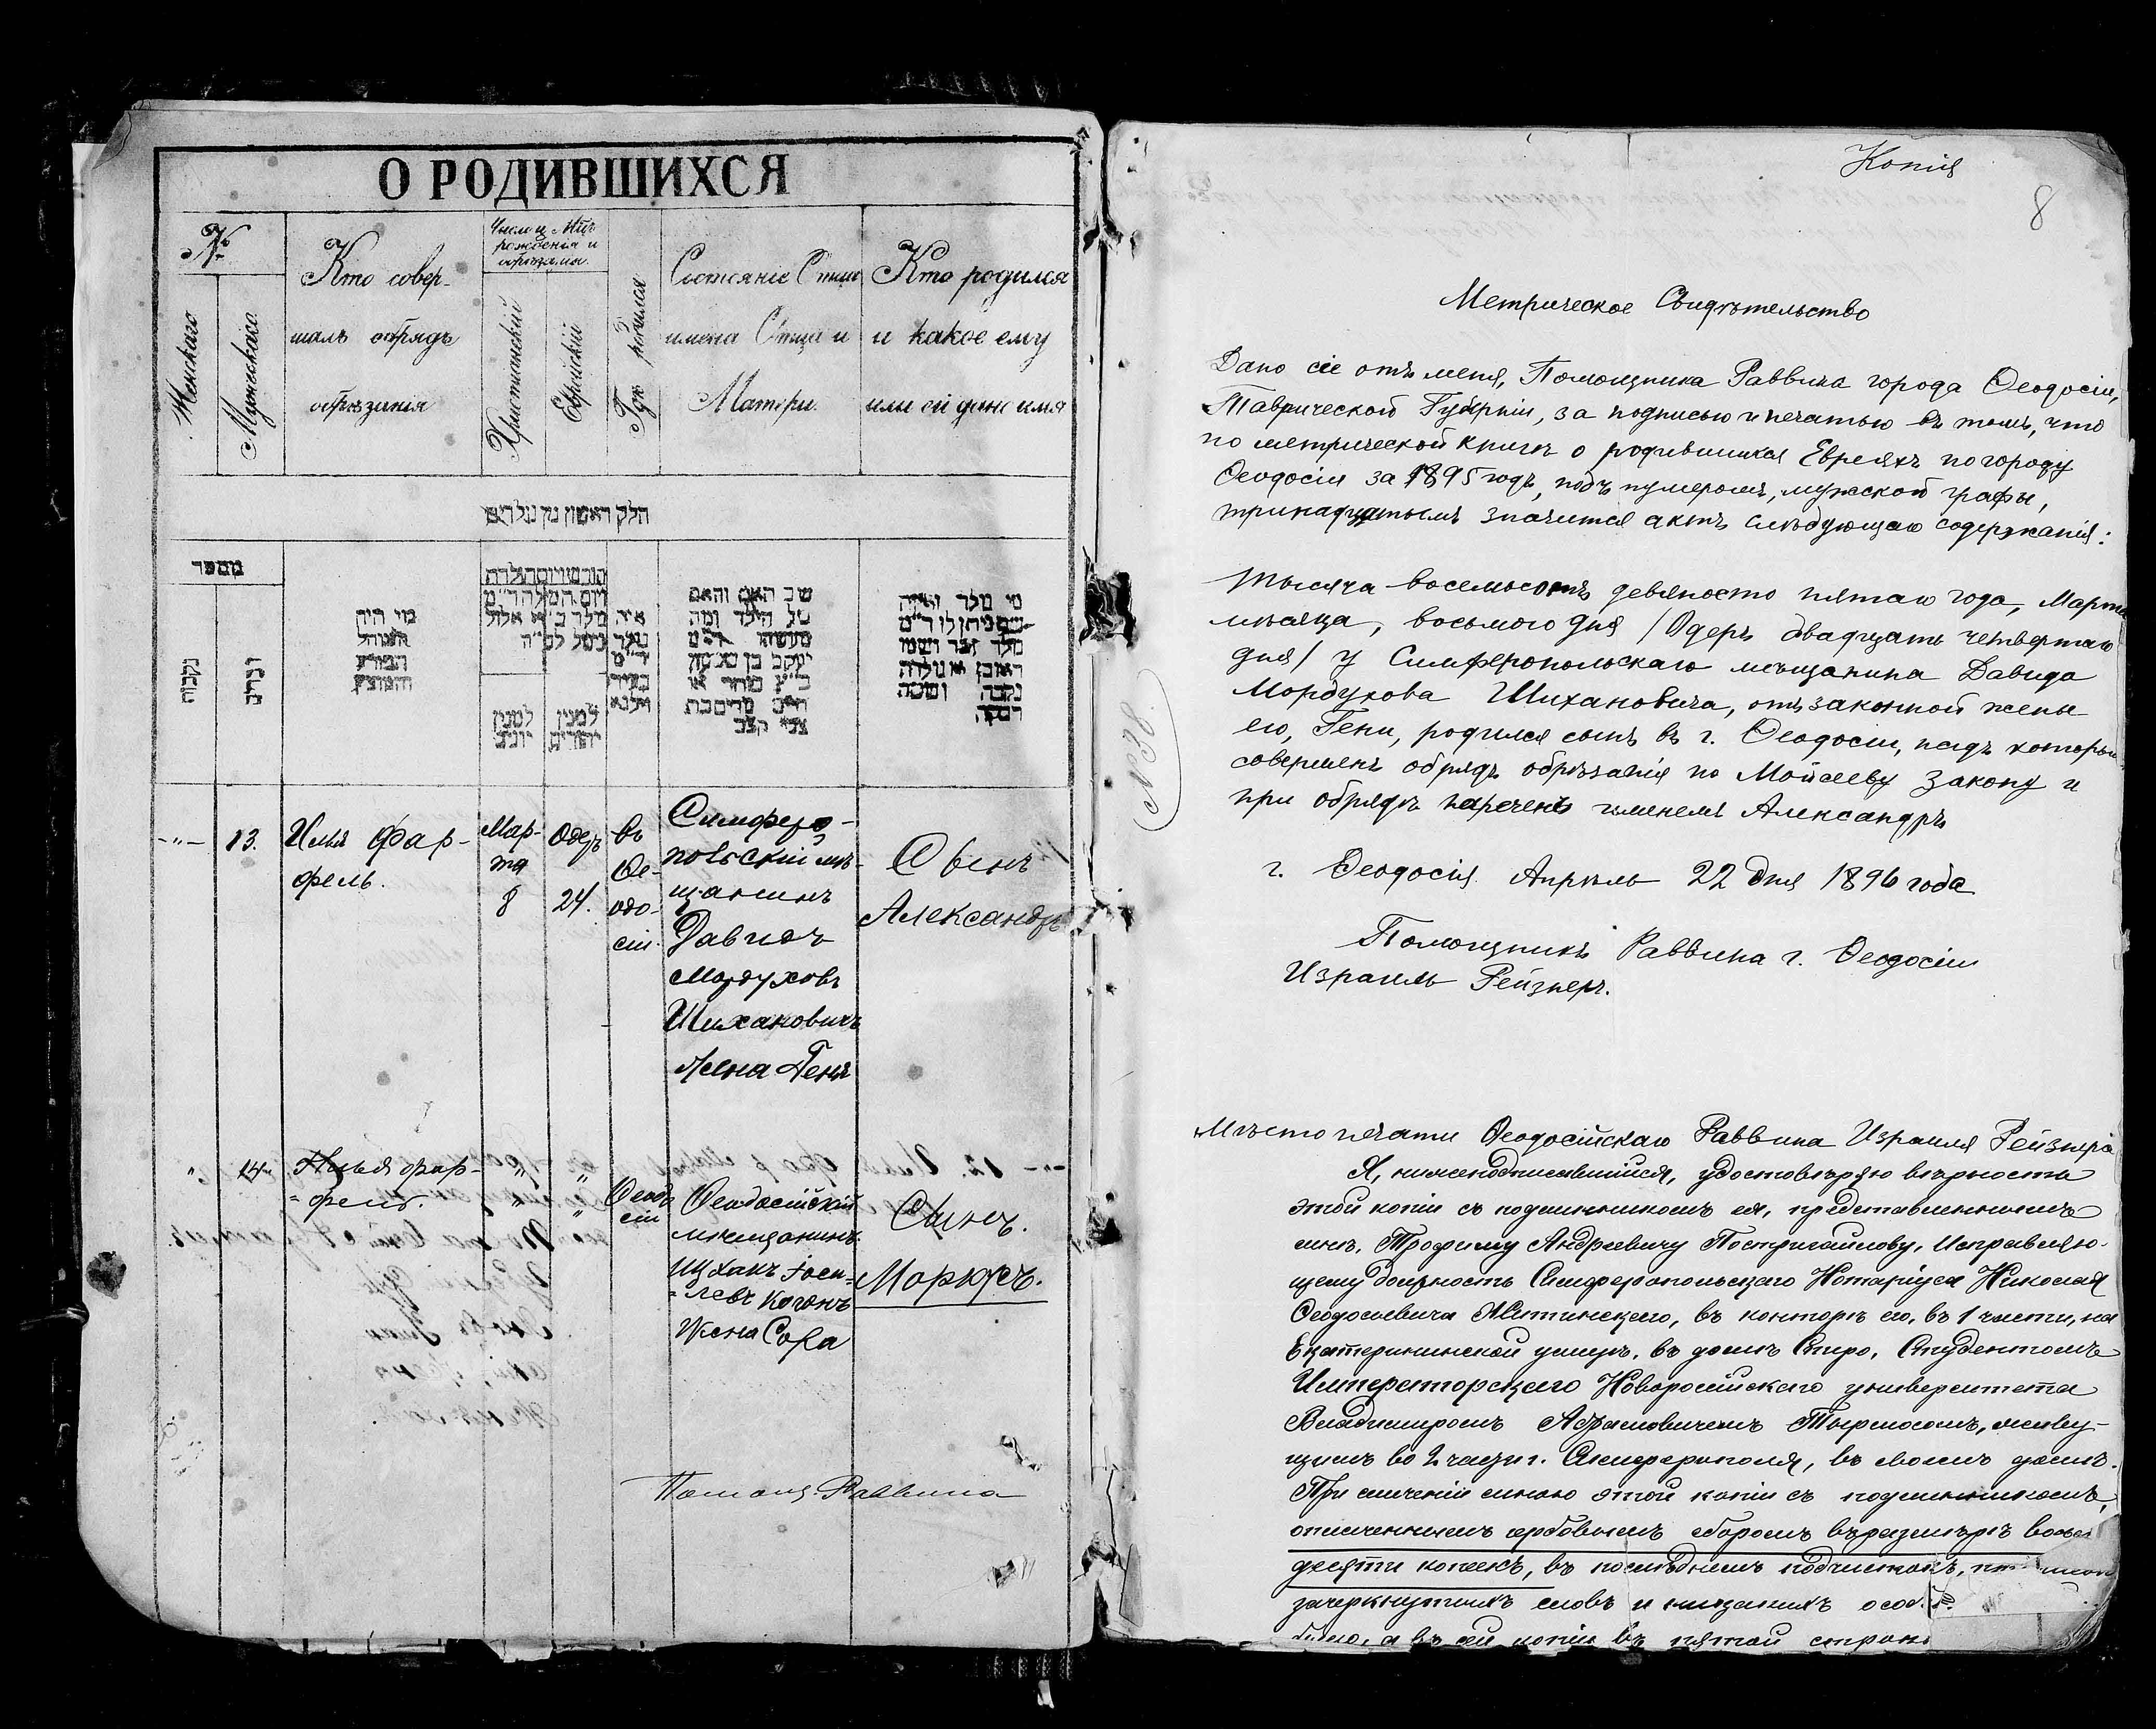 О РОДИВШИХСЯ
№
Женскаго
Мужескаго
Кто совер-
шалъ обрядъ
обрѣзанія
Число и Мѣс.
рожденія и
обрѣзанія.
Христіанскій
Еврейскій
Гдѣ родился
Состояніе Отца
имена Отца и
Матери.
Кто родился
и какое ему
или ей дано имя
חלק ראשון מן נולדים
מספר
נקבות
זכרים
מי היה
המוהל
והפורע
והמוצץ
ויום המילה ד״מ
נולד כ״א אלול
למנין
יוניב
למנין
יהודים
איה
נולד
ד״מ
בעיר
ווילנא
שב האם והאם
של הילד ומה
יעקב בן שמעון
כ״ץ סוחר או
חייט מרים בת
צבי קצב
מי נולד ואיזה
שם ניתן לו ד״מ
נולד זכר ושמו
ראובן או נולדה
נקבה ושמה
רבקה
-"- 13.
Илья Фар-
фель.
Мар-
та
8
Одеръ
24.
въ
Ѳе-
одо-
сіи
Симферо-
польскій мѣ-
щанинъ
Давидъ
Мордуховъ
Шихановичъ
Жена Геня
Сынъ
Александръ
" 14.
Илья фар-
=фель.
" "
" "
Ѳеодо
сіи
Ѳеодосійскій
мѣщанинъ
Ицхакъ Іоси=
=левъ Коганъ
Жена Сора
Сынъ.
Моркусъ.
Помощ. Раввина
Копія
8
№ 38.
Метрическое Свидѣтельство
Дано сіе отъ меня, Помощника Раввина города Ѳеодосіи,
Таврической Губерніи, за подписью и печатью въ томъ, что
по метрической книгѣ о родившихся Евреяхъ по городу
Ѳеодосіи за 1895 годъ, подъ нумеромъ, мужской графы,
тринадцатымъ значится актъ слѣдующаго содержанія:
Тысяча восемьсотъ девяносто пятаго года, Марта
мѣсяца, восьмого дня /Одеръ двадцать четвертаго
дня/ у Симферопольскаго мѣщанина Давида
Мордухова Шихановича, отъ законной жены
его, Гени, родился сынъ въ г. Ѳеодосіи, надъ которымъ
совершенъ обрядъ обрѣзанія по Мойсееву закону и
при обрядѣ нареченъ именемъ Александръ
г. Ѳеодосія Апрѣль 22 дня 1896 года
Помощникъ Раввина г. Ѳеодосіи
Израиль Рейзнеръ.
Мѣсто печати Ѳеодосійскаго Раввина Израиля Рейзнера
Я, нижеподписавшійся, удостовѣряю вѣрность
этой копіи съ подлинникомъ ея, представленнымъ
мнѣ, Трофиму Андреевичу Постригайлову, исправляю-
щему должность Симферопольскаго Нотаріуса Николая
Ѳеодосіевича Жетинскаго, въ конторѣ его, въ 1 части, на
Екатерининской улицѣ, въ домѣ Спиро, Студентомъ
Императорскаго Новороссійскаго университета
Владиміромъ Абрамовичемъ Тырмосомъ, живу-
щимъ во 2 части г. Симферополя, въ своемъ домѣ.
При сличеніи мною этой копіи съ подлинникомъ,
оплаченнымъ гербовымъ сборомъ въ размѣрѣ восьми
десяти копѣекъ, въ послѣднемъ подчистокъ,
зачеркнутыхъ словъ и никакихъ особ.
было, а въ сей копіи въ пятой строкѣ